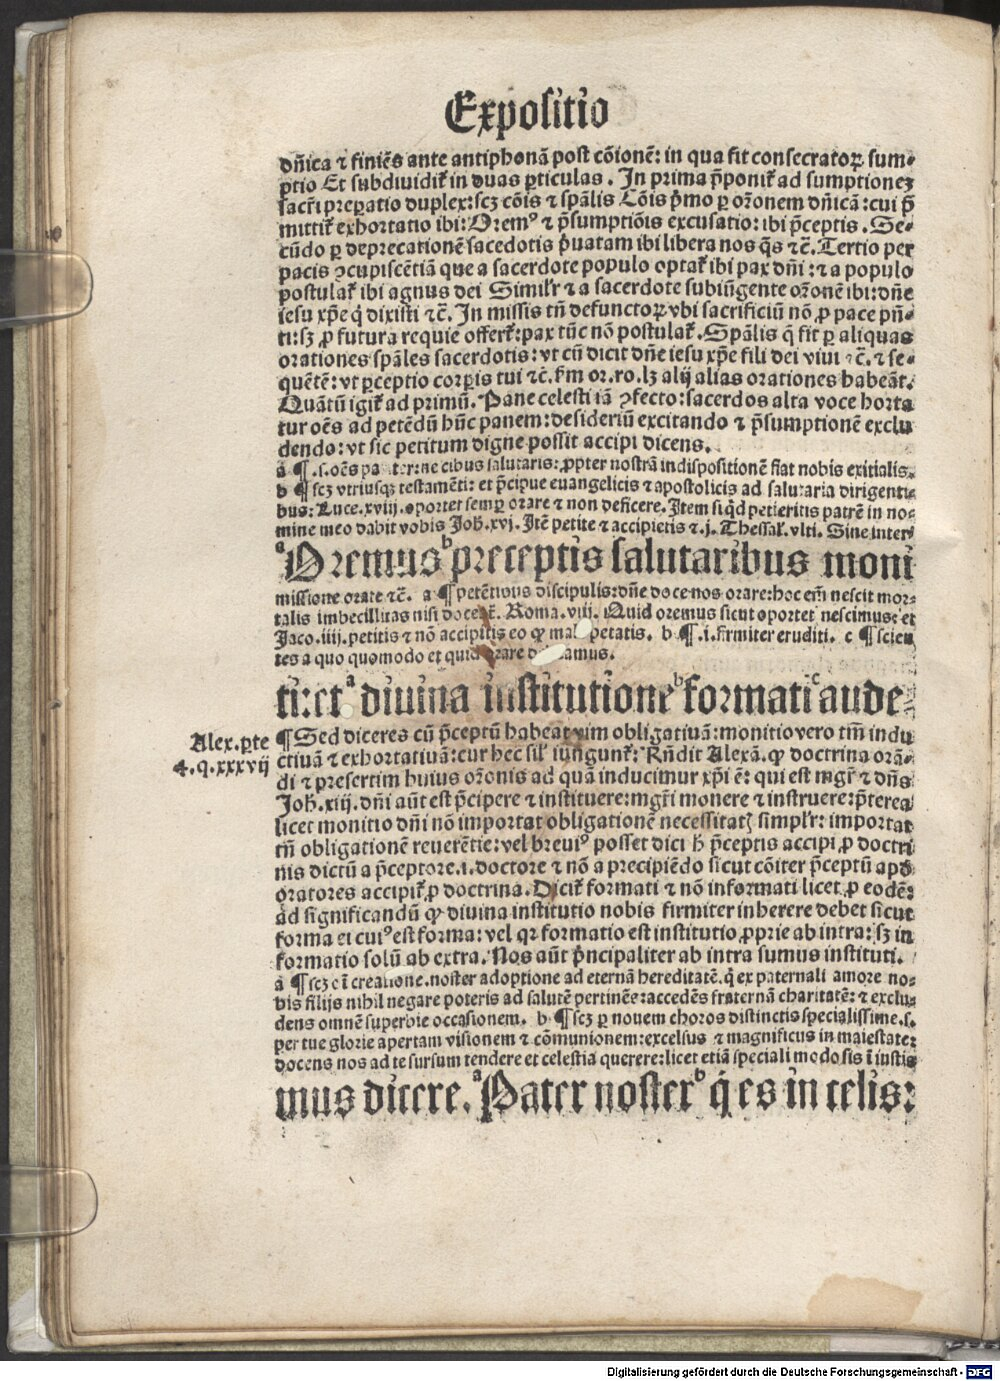 Expositio
dñica ⁊ finiẽs ante antiphonã post cõionẽ: in qua fit consecratoꝝ sum-
ptio Et subdiuidit̃ in duas ꝑticulas. In prima p̃ponit̃ ad sumptionez
sacr̃i preꝑatio duplex: scꝫ cõis ⁊ sp̃alis Cõis p̃mo ꝑ oꝛõnem dñicã: cui p̃
mittit̃ exhortatio ibi: Oꝛemꝰ ⁊ p̃sumptiõis excusatio: ibi p̃ceptis. Se-
cũdo ꝑ deprecationẽ sacedotis p̃uatam ibi libera nos q̃s ⁊c̃. Tertio per
pacis ꝯcupiscẽtiã que a sacerdote populo optat̃ ibi pax dñi: ⁊ a populo
postulat̃ ibi agnus dei Simil'r ⁊ a sacerdote subiũgente oꝛõnẽ ibi: dñe
iesu xp̃e q̃ dixisti ⁊c̃. In missis tñ defunctoꝝ vbi sacrificiũ nõ ꝓ pace pñ-
ti: sꝫ ꝓ futura requie offert̃: pax tũc nõ postulat̃. Sp̃alis q̃ fit ꝑ aliquas
orationes sp̃ales sacerdotis: vt cũ dicit dñe iesu xp̃e fili dei viui ⁊c̃. ⁊ se-
quẽtẽ: vt ꝑceptio corꝑis tui ⁊c̃. fm or. ro. lꝫ alij alias orationes habeãt.
Quãtũ igit̃ ad primũ. Pane celesti iã ꝯfecto: sacerdos alta voce horta
tur oẽs ad petẽdũ hũc panem: desideriũ excitando ⁊ p̃sumptionẽ exclu
dendo: vt sic petitum digne possit accipi dicens.
a ¶ .s. oẽs pa ter: ne cibus salutaris: ꝓpter nostrã indispositionẽ fiat nobis exitialis.
b ¶ scꝫ vtriusqꝫ testamẽti: et p̃cipue euangelicis ⁊ apostolicis ad salutaria dirigenti-
bus: Luce. xviij. oportet semꝑ orare ⁊ non deficere. Item siq̃d petieritis patrẽ in no-
mine meo dabit vobis Joh̃. xvj. Itẽ petite ⁊ accipietis ⁊ .j. Thessal'. vlti. Sine inter
ᵃOꝛemus ᵇpreceptis salutaribus moni
missione orate ⁊c̃. a ¶ petẽtibus discipulis: dñe doce nos orare: hoc em̃ nescit mor-
talis imbecillitas nisi docet̃. Roma. viij. Quid oremus sicut oportet nescimus: et
Jaco. iiij. petitis ⁊ nõ accipitis eo ꝙ male petatis. b ¶ .i. firmiter eruditi. c ¶ scien
tes a quo quomodo et quid orare debeamus.
ti: et ᵃdiuina institutione ᵇformati ᶜaude-
Alex. ꝑte
4. q. xxxvij
¶ Sed diceres cũ p̃ceptũ habeat vim obligatiuã: monitio vero tm̃ indu
ctiuã ⁊ exhortatiuã: cur hec sil' iungunt̃: Rñdit Alexã. ꝙ doctrina orã-
di ⁊ presertim huius oꝛõnis ad quã inducimur xp̃i ẽ: qui est mgr̃ ⁊ dñs
Joh̃. xiij. dñi aũt est p̃cipere ⁊ instituere: mgr̃i monere ⁊ instruere: p̃terea
licet monitio dñi nõ importat obligationẽ necessitatꝭ simpl'r: importat
tñ obligationẽ reuerẽtie: vel breuiꝰ posset dici h̃ p̃ceptis accipi ꝓ doctri
nis dictũ a p̃ceptore. i. doctore ⁊ nõ a precipiẽdo sicut cõiter p̃ceptũ apd̃
oratores accipit̃ ꝓ doctrina. Dicit̃ formati ⁊ nõ informati licet ꝓ eodẽ:
ad significandũ ꝙ diuina institutio nobis firmiter inherere debet sicut
forma ei cuiꝰ est forma: vel qꝛ formatio est institutio ꝓprie ab intra: sꝫ in
formatio solũ ab extra. Nos aũt p̃ncipaliter ab intra sumus instituti.
a ¶ scꝫ oĩ creatione. noster adoptione ad eternã hereditatẽ. q̃ ex paternali amore no-
bis filijs nihil negare poteris ad salutẽ pertinẽs: accedẽs fraternã charitatẽ: ⁊ exclu-
dens omnẽ superbie occasionem. b ¶ scꝫ ꝑ nouem choros distinctis specialissime. s.
per tue glorie apertam visionem ⁊ cõmunionem: excelsus ⁊ magnificus in maiestate:
docens nos ad te sursum tendere et celestia querere: licet etiã speciali modo sis ĩ iustis
mus dicere. ᵃPater noster ᵇq̃ es in celis:
Digitalisierung gefördert durch die Deutsche Forschungsgemeinschaft - DFG